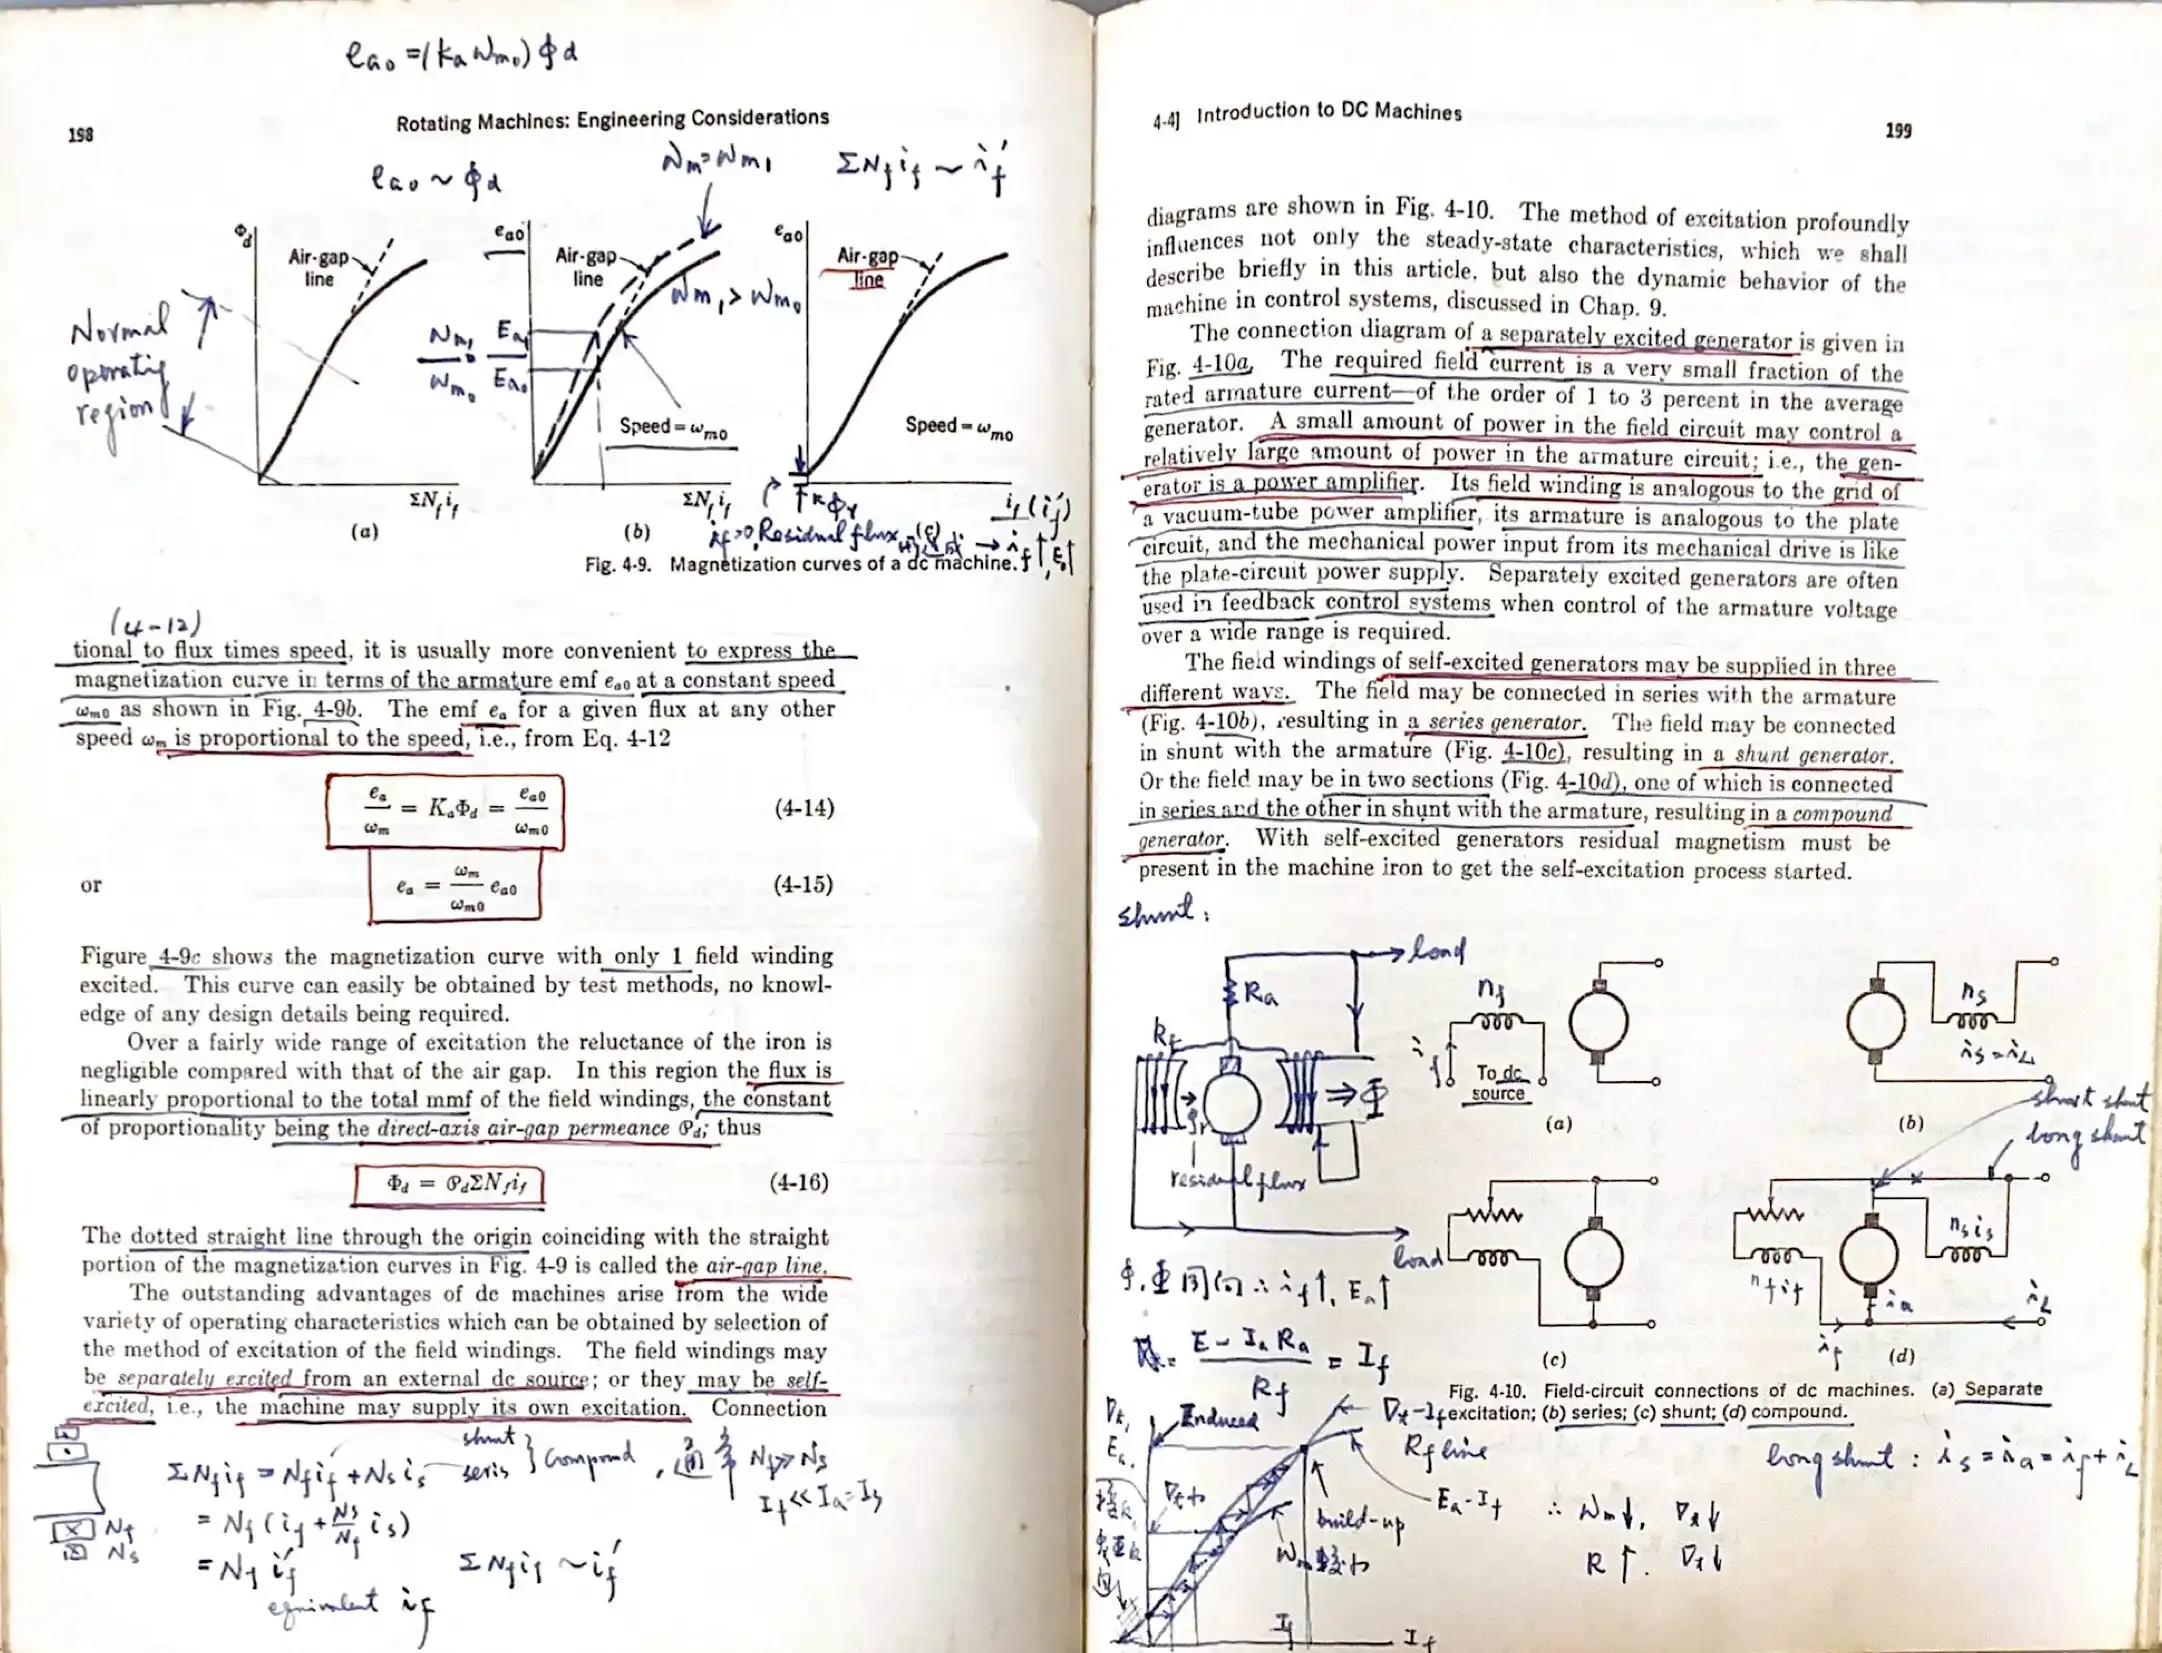 e_a0 = (K_a ω_m0) Φ_d
198
Rotating Machines: Engineering Considerations
e_a0 ~ Φ_d
ω_m = ω_m1
ΣN_f i_f ~ i_f'
Φ_d
Air-gap
line
e_a0
Air-gap
line
e_a0
Air-gap
line
Normal
operating
region
ω_m1 > ω_m0
ω_m1
ω_m0
E_a1
E_a0
Speed = ω_m0
Speed = ω_m0
ΣN_f i_f
ΣN_f i_f
i_f (i_f')
(a)
(b)
(c)
Residual flux
Fig. 4-9. Magnetization curves of a dc machine.
(4-12)
tional to flux times speed, it is usually more convenient to express the
magnetization curve in terms of the armature emf e_a0 at a constant speed
ω_m0 as shown in Fig. 4-9b. The emf e_a for a given flux at any other
speed ω_m is proportional to the speed, i.e., from Eq. 4-12
e_a/ω_m = K_aΦ_d = e_a0/ω_m0 (4-14)
or e_a = ω_m/ω_m0 e_a0 (4-15)
Figure 4-9c shows the magnetization curve with only 1 field winding
excited. This curve can easily be obtained by test methods, no knowl-
edge of any design details being required.
Over a fairly wide range of excitation the reluctance of the iron is
negligible compared with that of the air gap. In this region the flux is
linearly proportional to the total mmf of the field windings, the constant
of proportionality being the direct-axis air-gap permeance 𝒫_d; thus
Φ_d = 𝒫_dΣN_f i_f (4-16)
The dotted straight line through the origin coinciding with the straight
portion of the magnetization curves in Fig. 4-9 is called the air-gap line.
The outstanding advantages of dc machines arise from the wide
variety of operating characteristics which can be obtained by selection of
the method of excitation of the field windings. The field windings may
be separately excited from an external dc source; or they may be self-
excited, i.e., the machine may supply its own excitation. Connection
shunt
seris } Compound, 通常 N_f >> N_s
I_f << I_a = I_s
ΣN_f i_f = N_f i_f + N_s i_s
= N_f (i_f + N_s/N_f i_s)
= N_f i_f'
equivalent i_f
ΣN_f i_f ~ i_f'
N_f
N_s
4-4] Introduction to DC Machines
199
diagrams are shown in Fig. 4-10. The method of excitation profoundly
influences not only the steady-state characteristics, which we shall
describe briefly in this article, but also the dynamic behavior of the
machine in control systems, discussed in Chap. 9.
The connection diagram of a separately excited generator is given in
Fig. 4-10a. The required field current is a very small fraction of the
rated armature current—of the order of 1 to 3 percent in the average
generator. A small amount of power in the field circuit may control a
relatively large amount of power in the armature circuit; i.e., the gen-
erator is a power amplifier. Its field winding is analogous to the grid of
a vacuum-tube power amplifier, its armature is analogous to the plate
circuit, and the mechanical power input from its mechanical drive is like
the plate-circuit power supply. Separately excited generators are often
used in feedback control systems when control of the armature voltage
over a wide range is required.
The field windings of self-excited generators may be supplied in three
different ways. The field may be connected in series with the armature
(Fig. 4-10b), resulting in a series generator. The field may be connected
in shunt with the armature (Fig. 4-10c), resulting in a shunt generator.
Or the field may be in two sections (Fig. 4-10d), one of which is connected
in series and the other in shunt with the armature, resulting in a compound
generator. With self-excited generators residual magnetism must be
present in the machine iron to get the self-excitation process started.
shunt:
load
R_a
R_f
Φ
residual flux
load
n_f
i_f
To dc
source
(a)
n_s
i_s = i_L
(b)
short shunt
long shunt
n_s i_s
n_f i_f
i_a
i_L
i_f
(c)
(d)
同向 ∴ i_f↑, E_a↑
E - I_a R_a / R_f = I_f
Fig. 4-10. Field-circuit connections of dc machines. (a) Separate
excitation; (b) series; (c) shunt; (d) compound.
V_t - I_f
R_f line
Induced
V_t
E_a
E_a - I_f
build-up
I_f
I_f
long shunt: i_s = i_a = i_f + i_L
∴ ω_m↓, V_t↓
R↑. V_t↓